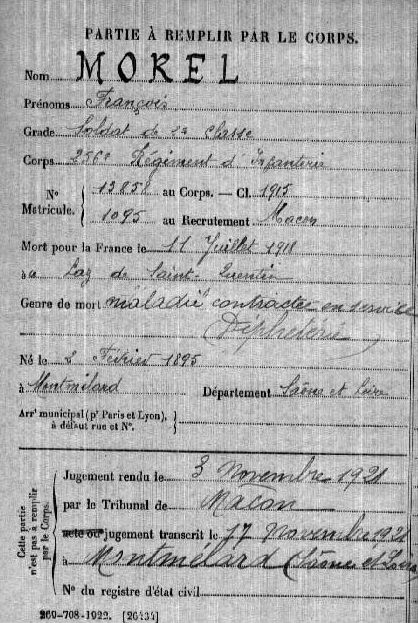 PARTIE À REMPLIR PAR LE CORPS.
Nom MOREL
Prénoms François
Grade Soldat de 1e Classe
Corps 256e Régiment d'Infanterie
N° Matricule. { 13858 au Corps. — Cl. 1915
1095 au Recrutement Macon
Mort pour la France le 11 Juillet 1918
à a Laz de Saint-Quentin
Genre de mort maladie contractée en service
(Diphtérie)
Né le 2 Février 1895
à Montmélard Département Saône et Loire
Arrt municipal (pr Paris et Lyon), }
à défaut rue et N°.
Cette partie n'est pas à remplir par le Corps.
Jugement rendu le 3 Novembre 1921
par le Tribunal de Macon
acte ou jugement transcrit le 17 Novembre 1921
à Montmélard (Saône et Loire
N° du registre d'état civil
260-708-1922. [26434]